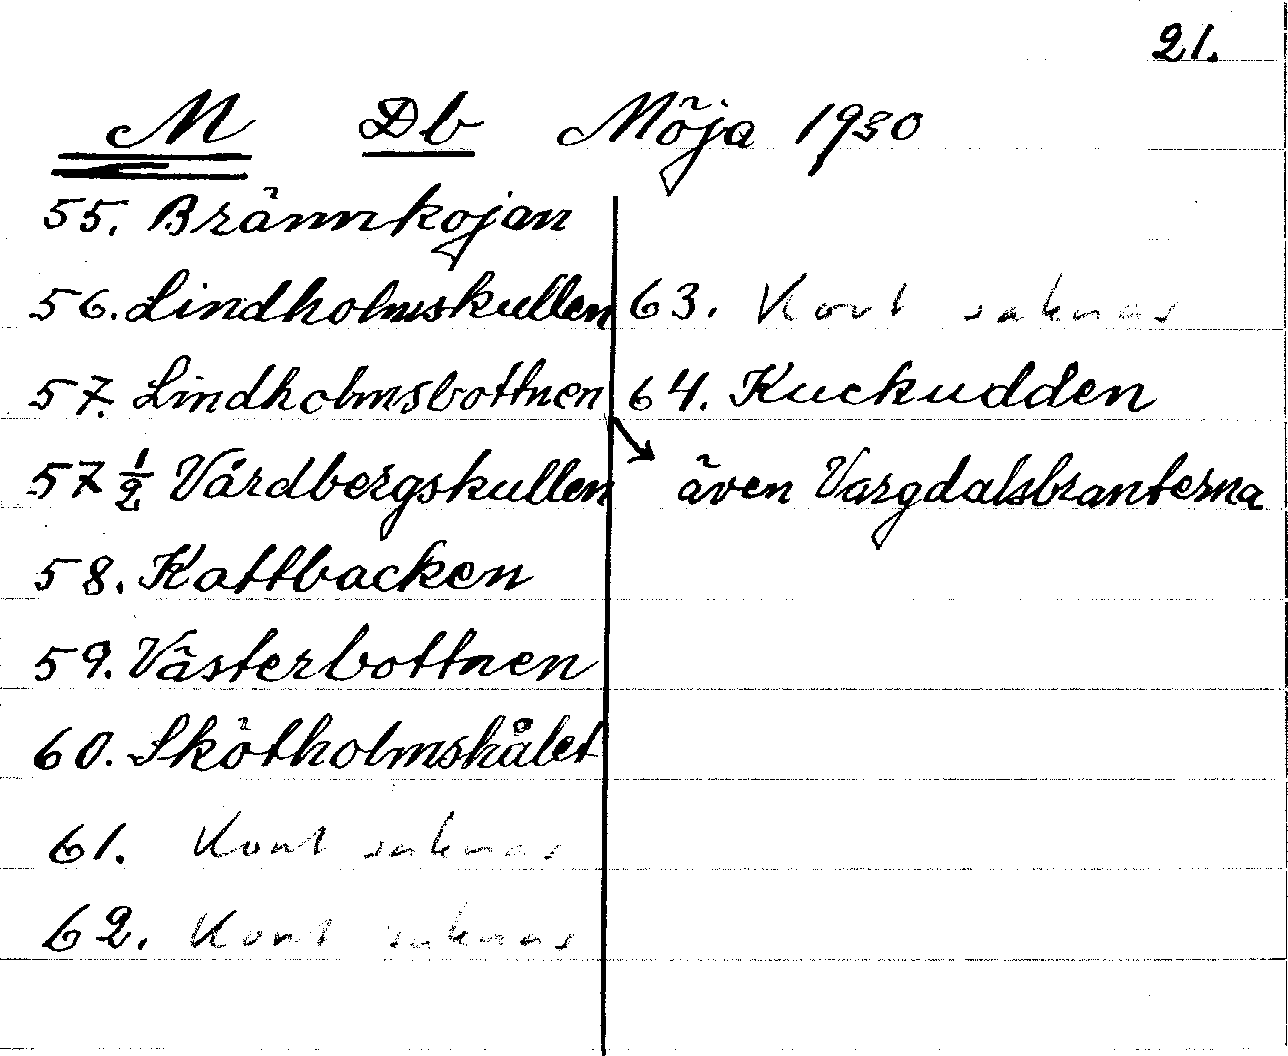 21.
M Db Möja 1930
55. Brännkojan
56. Lindholmskullen
57. Lindholmsbottnen
57 1/2 Vårdbergskullen
58. Kattbacken
59. Västerbottnen
60. Skötholmshålet
61. Kort saknas
62. Kort saknas
63. Kort saknas
64. Kuckudden
även Vargdalsbranterna